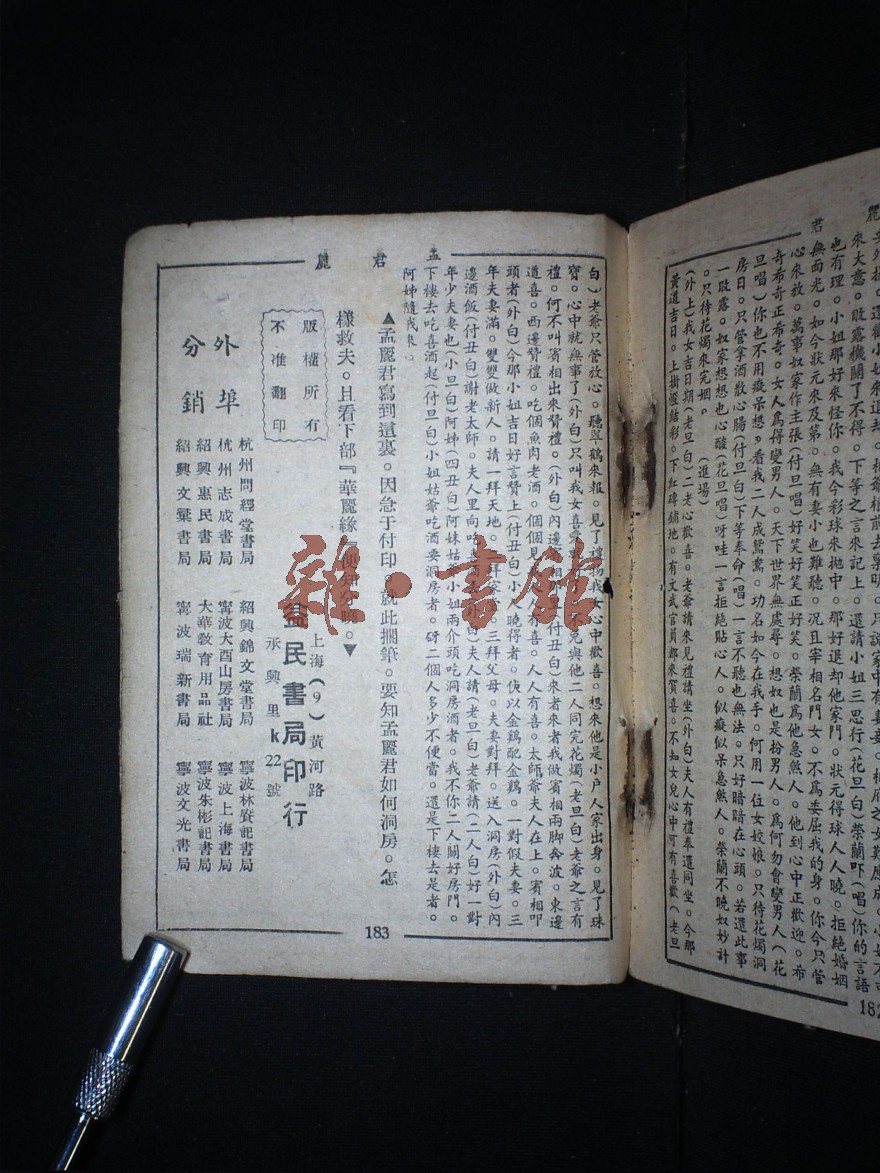 君
無面光。如今狀元來及第。無有妻小也難聽。況且宰相名門女。不爲委屈我的身。你今只管
心來放。萬事奴家作主張(付旦唱)好笑好笑正好笑。榮蘭爲他急煞人。他到心中正歡迎。希
奇希奇正希奇。女人爲得變男人。天下世界無處尋。想奴也是扮男人。爲何勿會變男人(花
旦唱)你也不用癡呆想。看我二人成鴛鴦。功名如今在我手。何用一位女姣娘。只待花燭洞
房日。只管拿酒散心腸(付旦白)下等奉命(唱)一言不聽也無法。只好暗暗在心頭。若還此事
一敗露。奴家想想也心酸(花旦唱)呀哇一言拒絕貼心人。似癡似呆急煞人。榮蘭不曉奴妙計
。只待花燭來完姻。
(進場)
(外上)我女吉日期(老旦白)二老心歡喜。老爺請來見禮請坐(外白)夫人有禮奉還同坐。今那
黃道吉日。上掛燈結彩。下紅磚鋪地。有文武官員都來賀喜。不知女兒心中可有喜歡(老旦
182
孟 麗 君
白)老爺只管放心。聽翠鶴來報。見了禮物我女心中歡喜。想來他是小戶人家出身。見了珠
寶。心中就無事了(外白)只叫我女喜愛
不免與他二人同完花燭(老旦白)老爺之言有
禮。何不叫賓相出來贊禮。(外白)內邊
付丑白)來者來者我做賓相兩脚奔波。東邊
道喜。西邊贊禮。吃個魚肉老酒。個個見
人有喜。人人有喜。太師爺夫人在上。賓相叩
頭者(外白)今那小姐吉日好言贊上(付丑白)小人曉得者。伏以金鷄配金鷄。一對假夫妻。三
年夫妻滿。雙雙做新人。請一拜天地。
拜家
三拜父母。夫妻對拜。送入洞房(外白)內
邊酒飯(付丑白)謝老太師。夫人里向吃喜酒
白)夫人請(老旦白)老爺請(二人白)好一對
年少夫妻也(小旦白)阿姊(四丑白)阿妹姑爺小姐兩介頭吃洞房酒者。我不你二人關好房門。
下樓去吃喜酒起(付旦白)小姐姑爺吃酒要洞房者。呀二個人多少不便當。還是下樓去是者。
阿姊隨我來。
▲孟麗君寫到這裏。因急于付印。就此擱筆。要知孟麗君如何洞房。怎
樣救夫。且看下部『華麗緣』便知分曉。▼
版權所有
不准翻印
上海(9)黃河路
承興里k22號
益民書局印行
外埠
分銷
杭州問經堂書局 紹興錦文堂書局 寧波林賡記書局
杭州志成書局 寧波大酉山房書局 寧波上海書局
紹興惠民書局 大華教育用品社 寧波朱彬記書局
紹興文彙書局 寧波瑞新書局 寧波文光書局
183
雜·書館